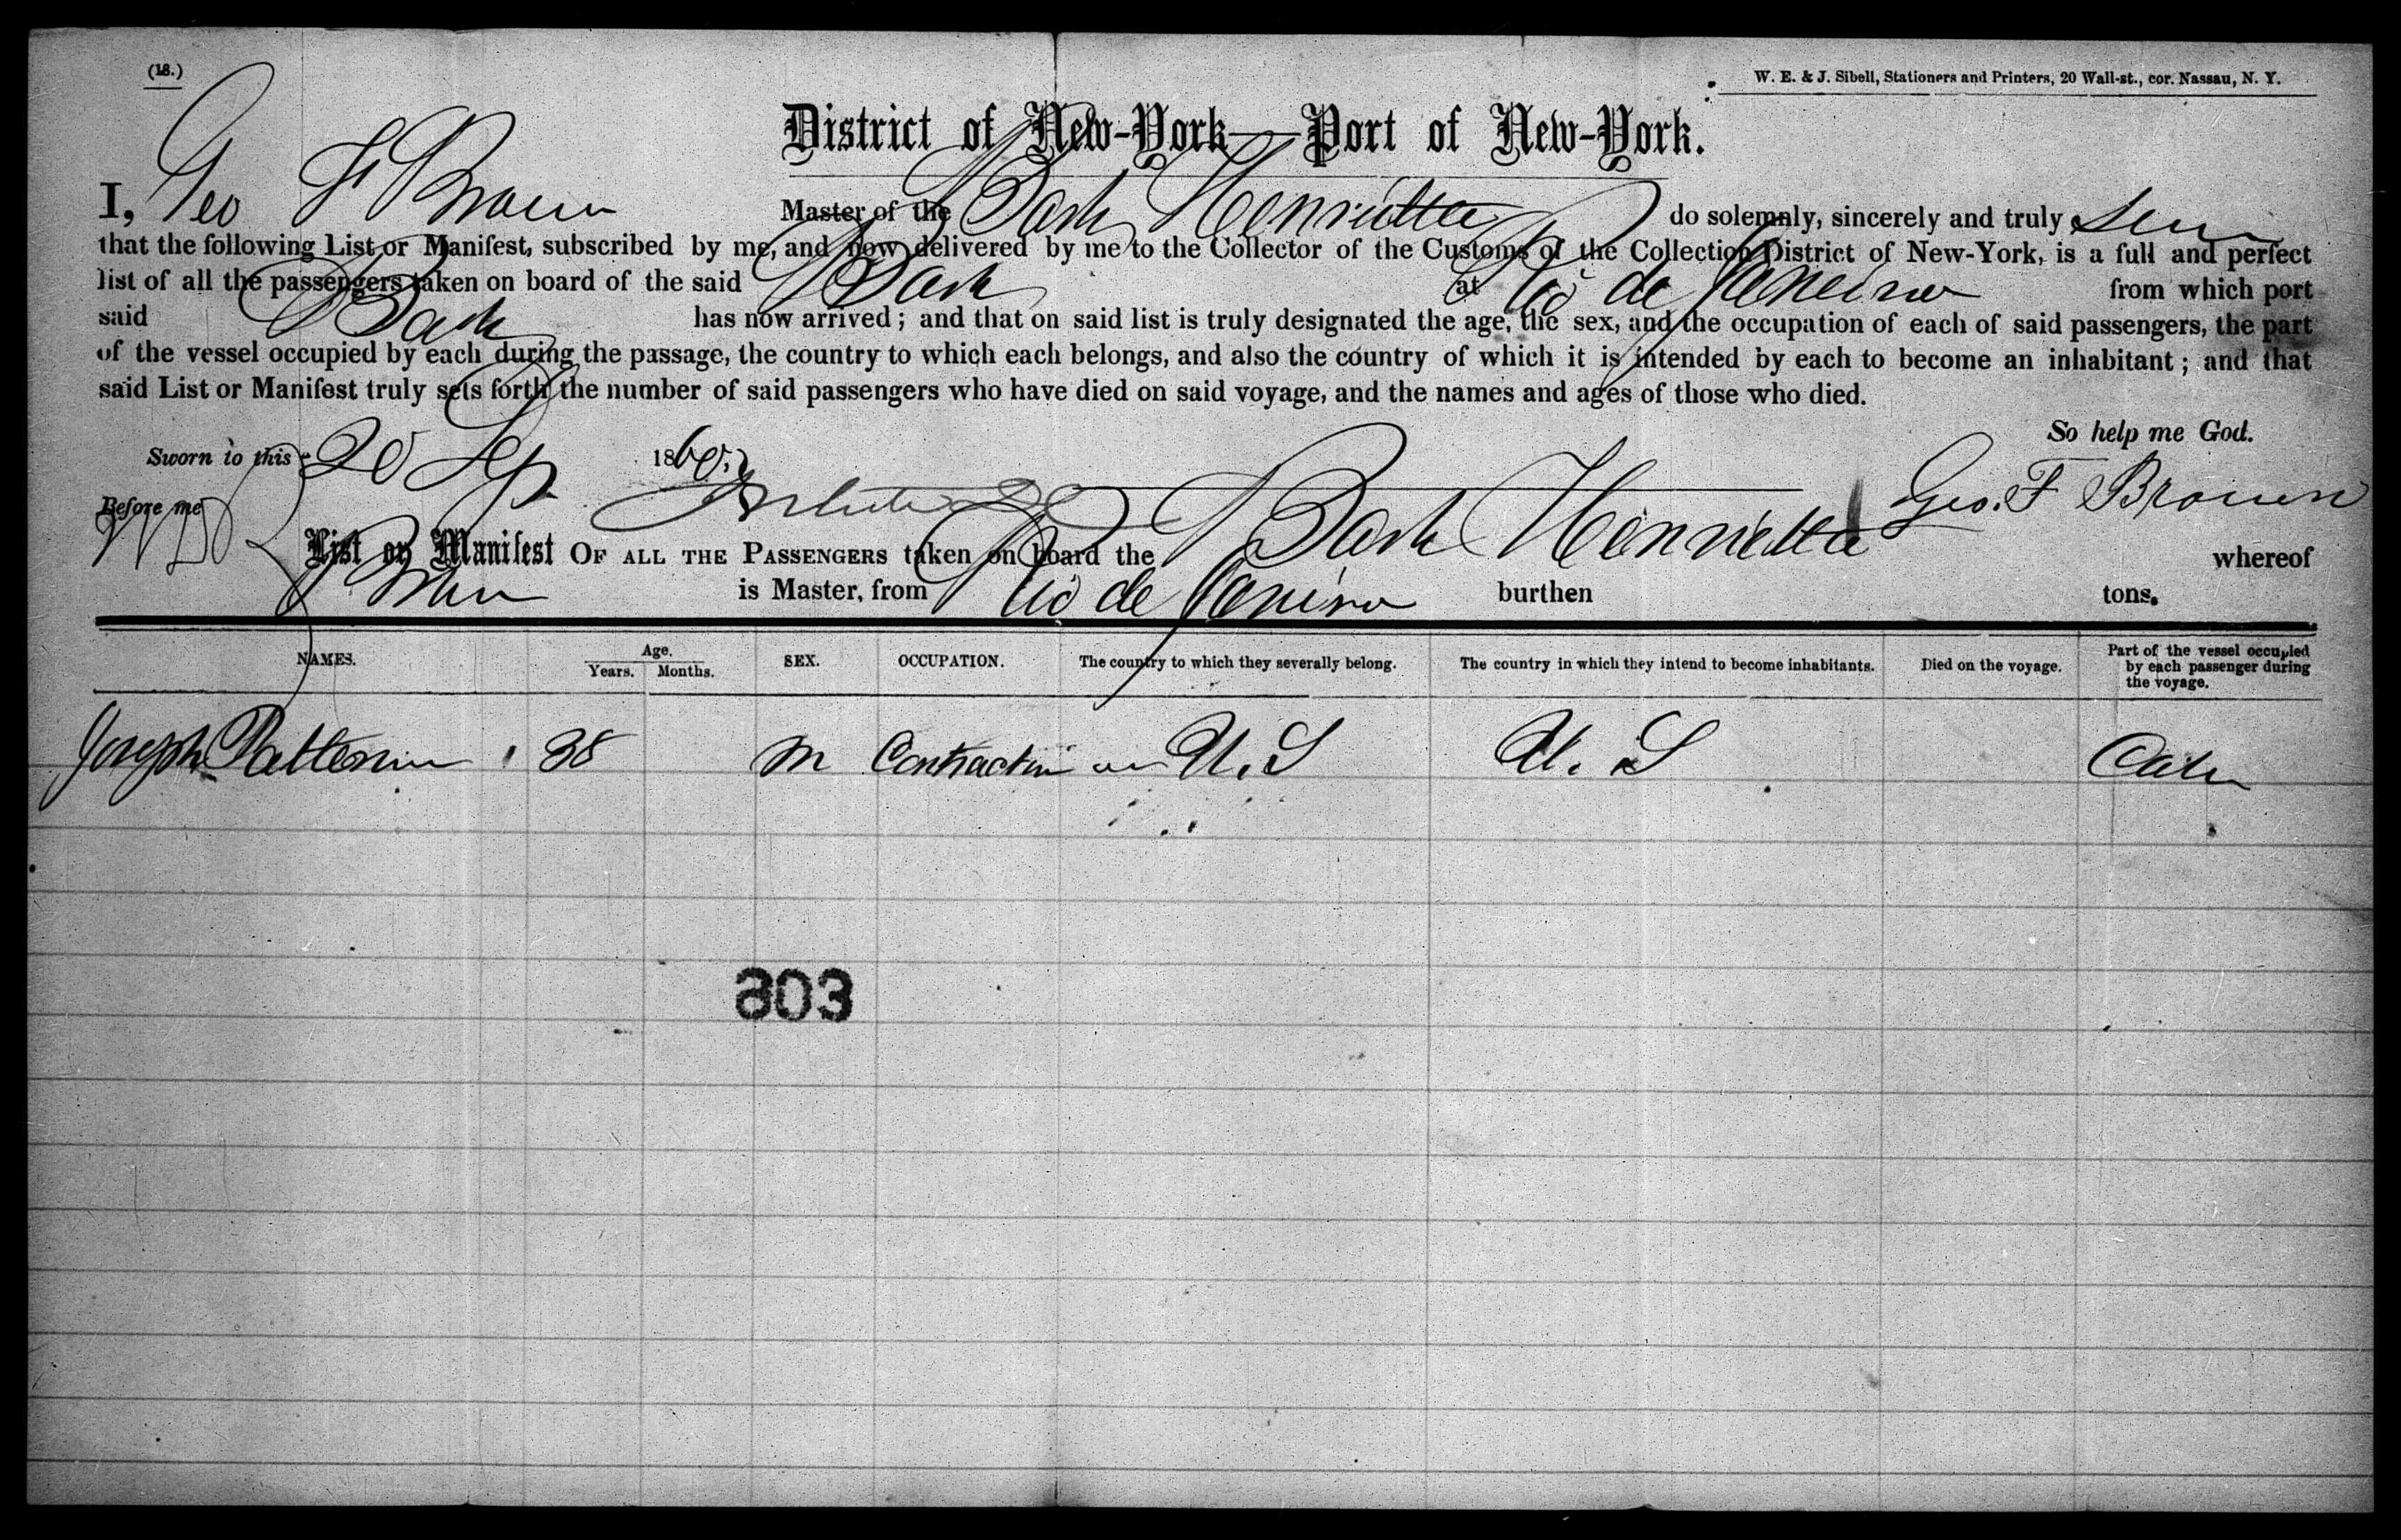 (18.)
W. E. & J. Sibell, Stationers and Printers, 20 Wall-st., cor. Nassau, N. Y.
District of New-York—Port of New-York.
I, Geo F Brown Master of the Bark Henrietta do solemnly, sincerely and truly
that the following List or Manifest, subscribed by me, and now delivered by me to the Collector of the Customs of the Collection District of New-York, is a full and perfect
list of all the passengers taken on board of the said Bark at Rio de Janeiro from which port
said Bark has now arrived; and that on said list is truly designated the age, the sex, and the occupation of each of said passengers, the part
of the vessel occupied by each during the passage, the country to which each belongs, and also the country of which it is intended by each to become an inhabitant; and that
said List or Manifest truly sets forth the number of said passengers who have died on said voyage, and the names and ages of those who died.
So help me God.
Sworn to this 20 Sep 1860.
Geo. F Brown
Before me
List or Manifest OF ALL THE PASSENGERS taken on board the Bark Henrietta whereof
Brown is Master, from Rio de Janeiro burthen tons.
NAMES. Age. Years. Months. SEX. OCCUPATION. The country to which they severally belong. The country in which they intend to become inhabitants. Died on the voyage. Part of the vessel occupied by each passenger during the voyage.
Joseph Patterson 38 M U.S U.S
803